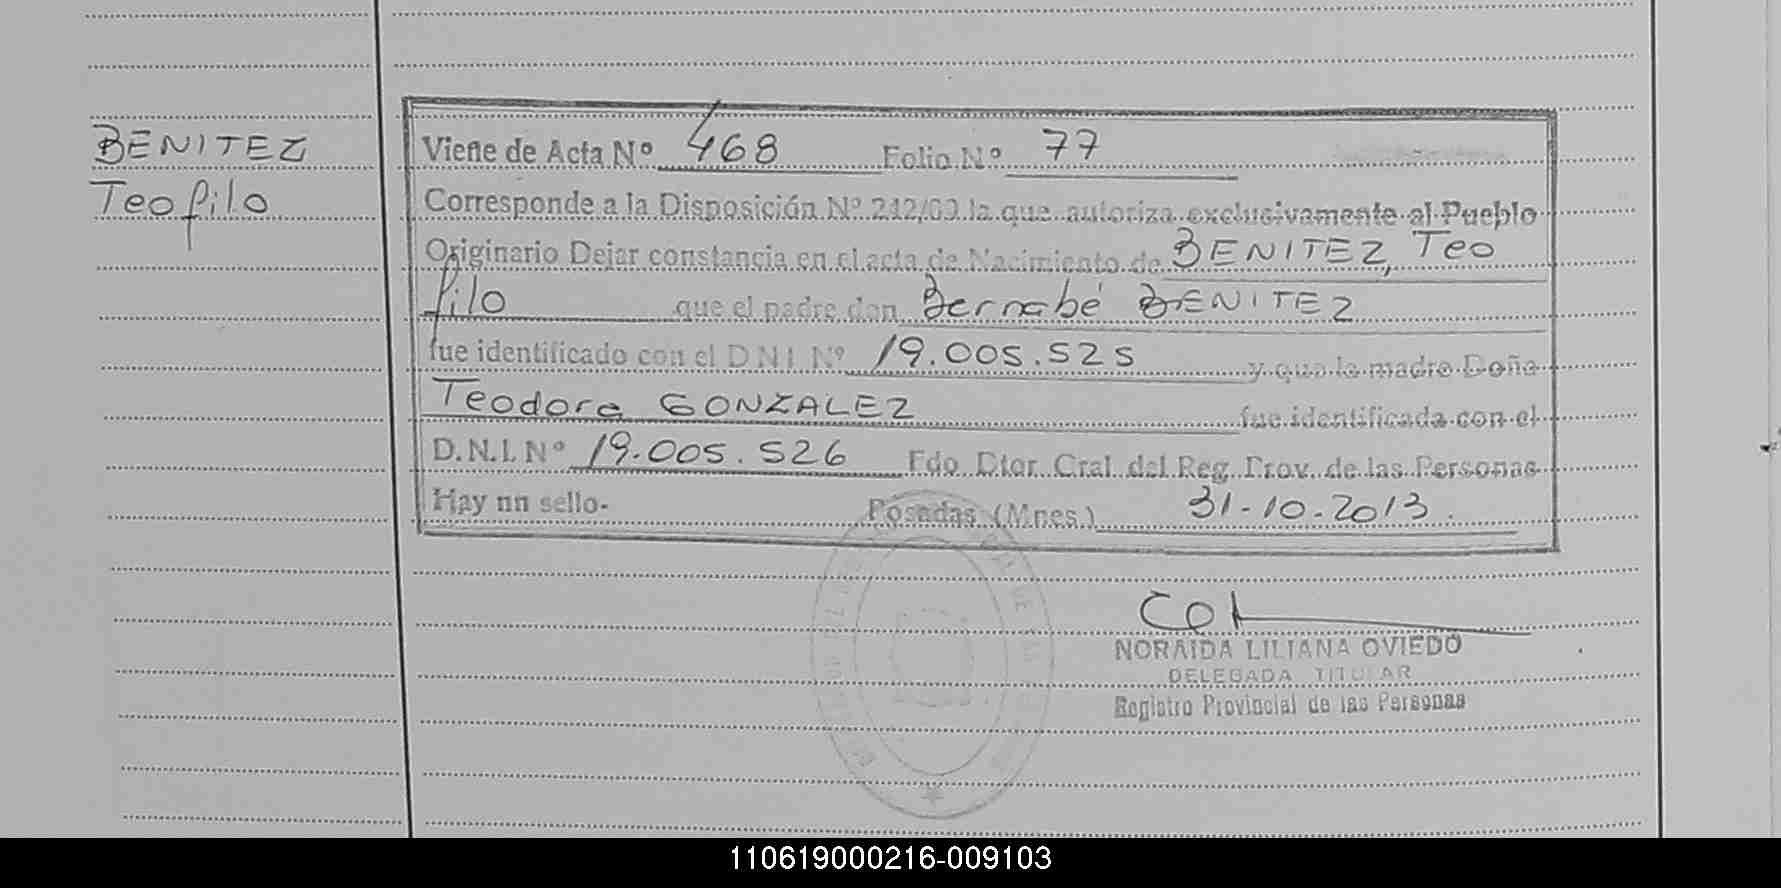 BENITEZ
Teofilo
Viene de Acta Nº 468 Folio Nº 77
Corresponde a la Disposición Nº 242/09 la que autoriza exclusivamente al Pueblo
Originario Dejar constancia en el acta de Nacimiento de BENITEZ, Teo
filo que el padre don Bernabé BENITEZ
fue identificado con el D N I Nº 19.005.525 y que la madre Doña
Teodora GONZALEZ fue identificada con el
D.N.I. Nº 19.005.526 Fdo Dtor. Gral. del Reg. Prov. de las Personas
Hay nn sello- Posadas (Mnes.) 31-10-2013.
NORAIDA LILIANA OVIEDO
DELEGADA TITULAR
Registro Provincial de las Personas
110619000216-009103